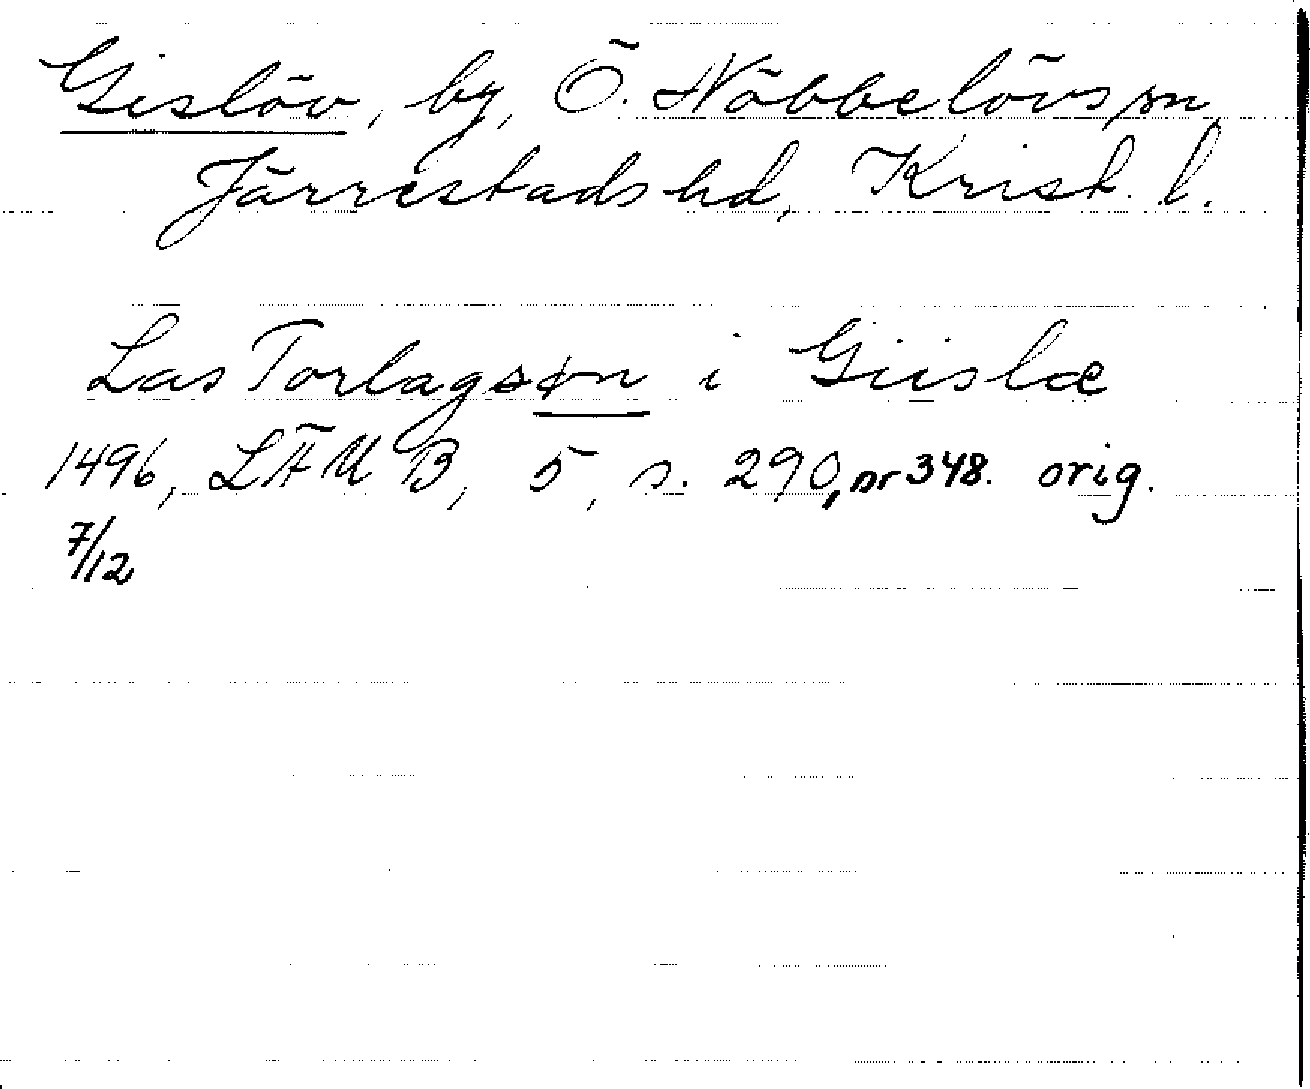 Gislöv, by, Ö. Nöbbelövs sn,
Järrestads hd, Krist. l.
Las Torlagsøn i Giislæ
1496, LÄUB, 5, s. 290, nr 348. orig.
7/12